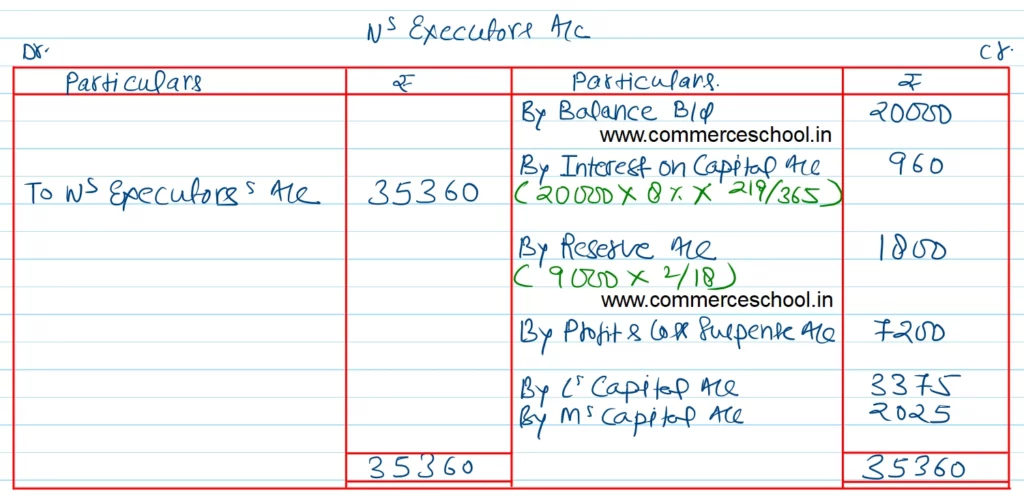 Nˢ Executors A/c
Dr. Cr.
Particulars ₹ Particulars. ₹
By Balance B/d 20000
www.commerceschool.in
By Interest on Capital A/c 960
To Nˢ Executors's A/c 35360 (20000 × 8% × 219/365)
By Reserve A/c 1800
(9000 × 2/18)
www.commerceschool.in
By Profit & Loss Suspense A/c 7200
By Lˢ Capital A/c 3375
By Mˢ Capital A/c 2025
35360 35360